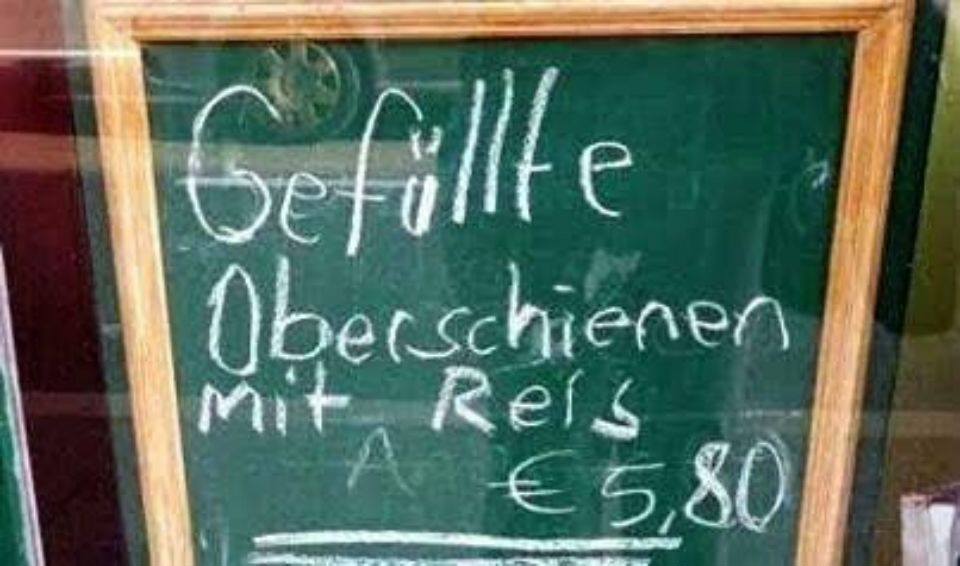 Gefüllte
Oberschienen
mit Reis
A
€ 5,80